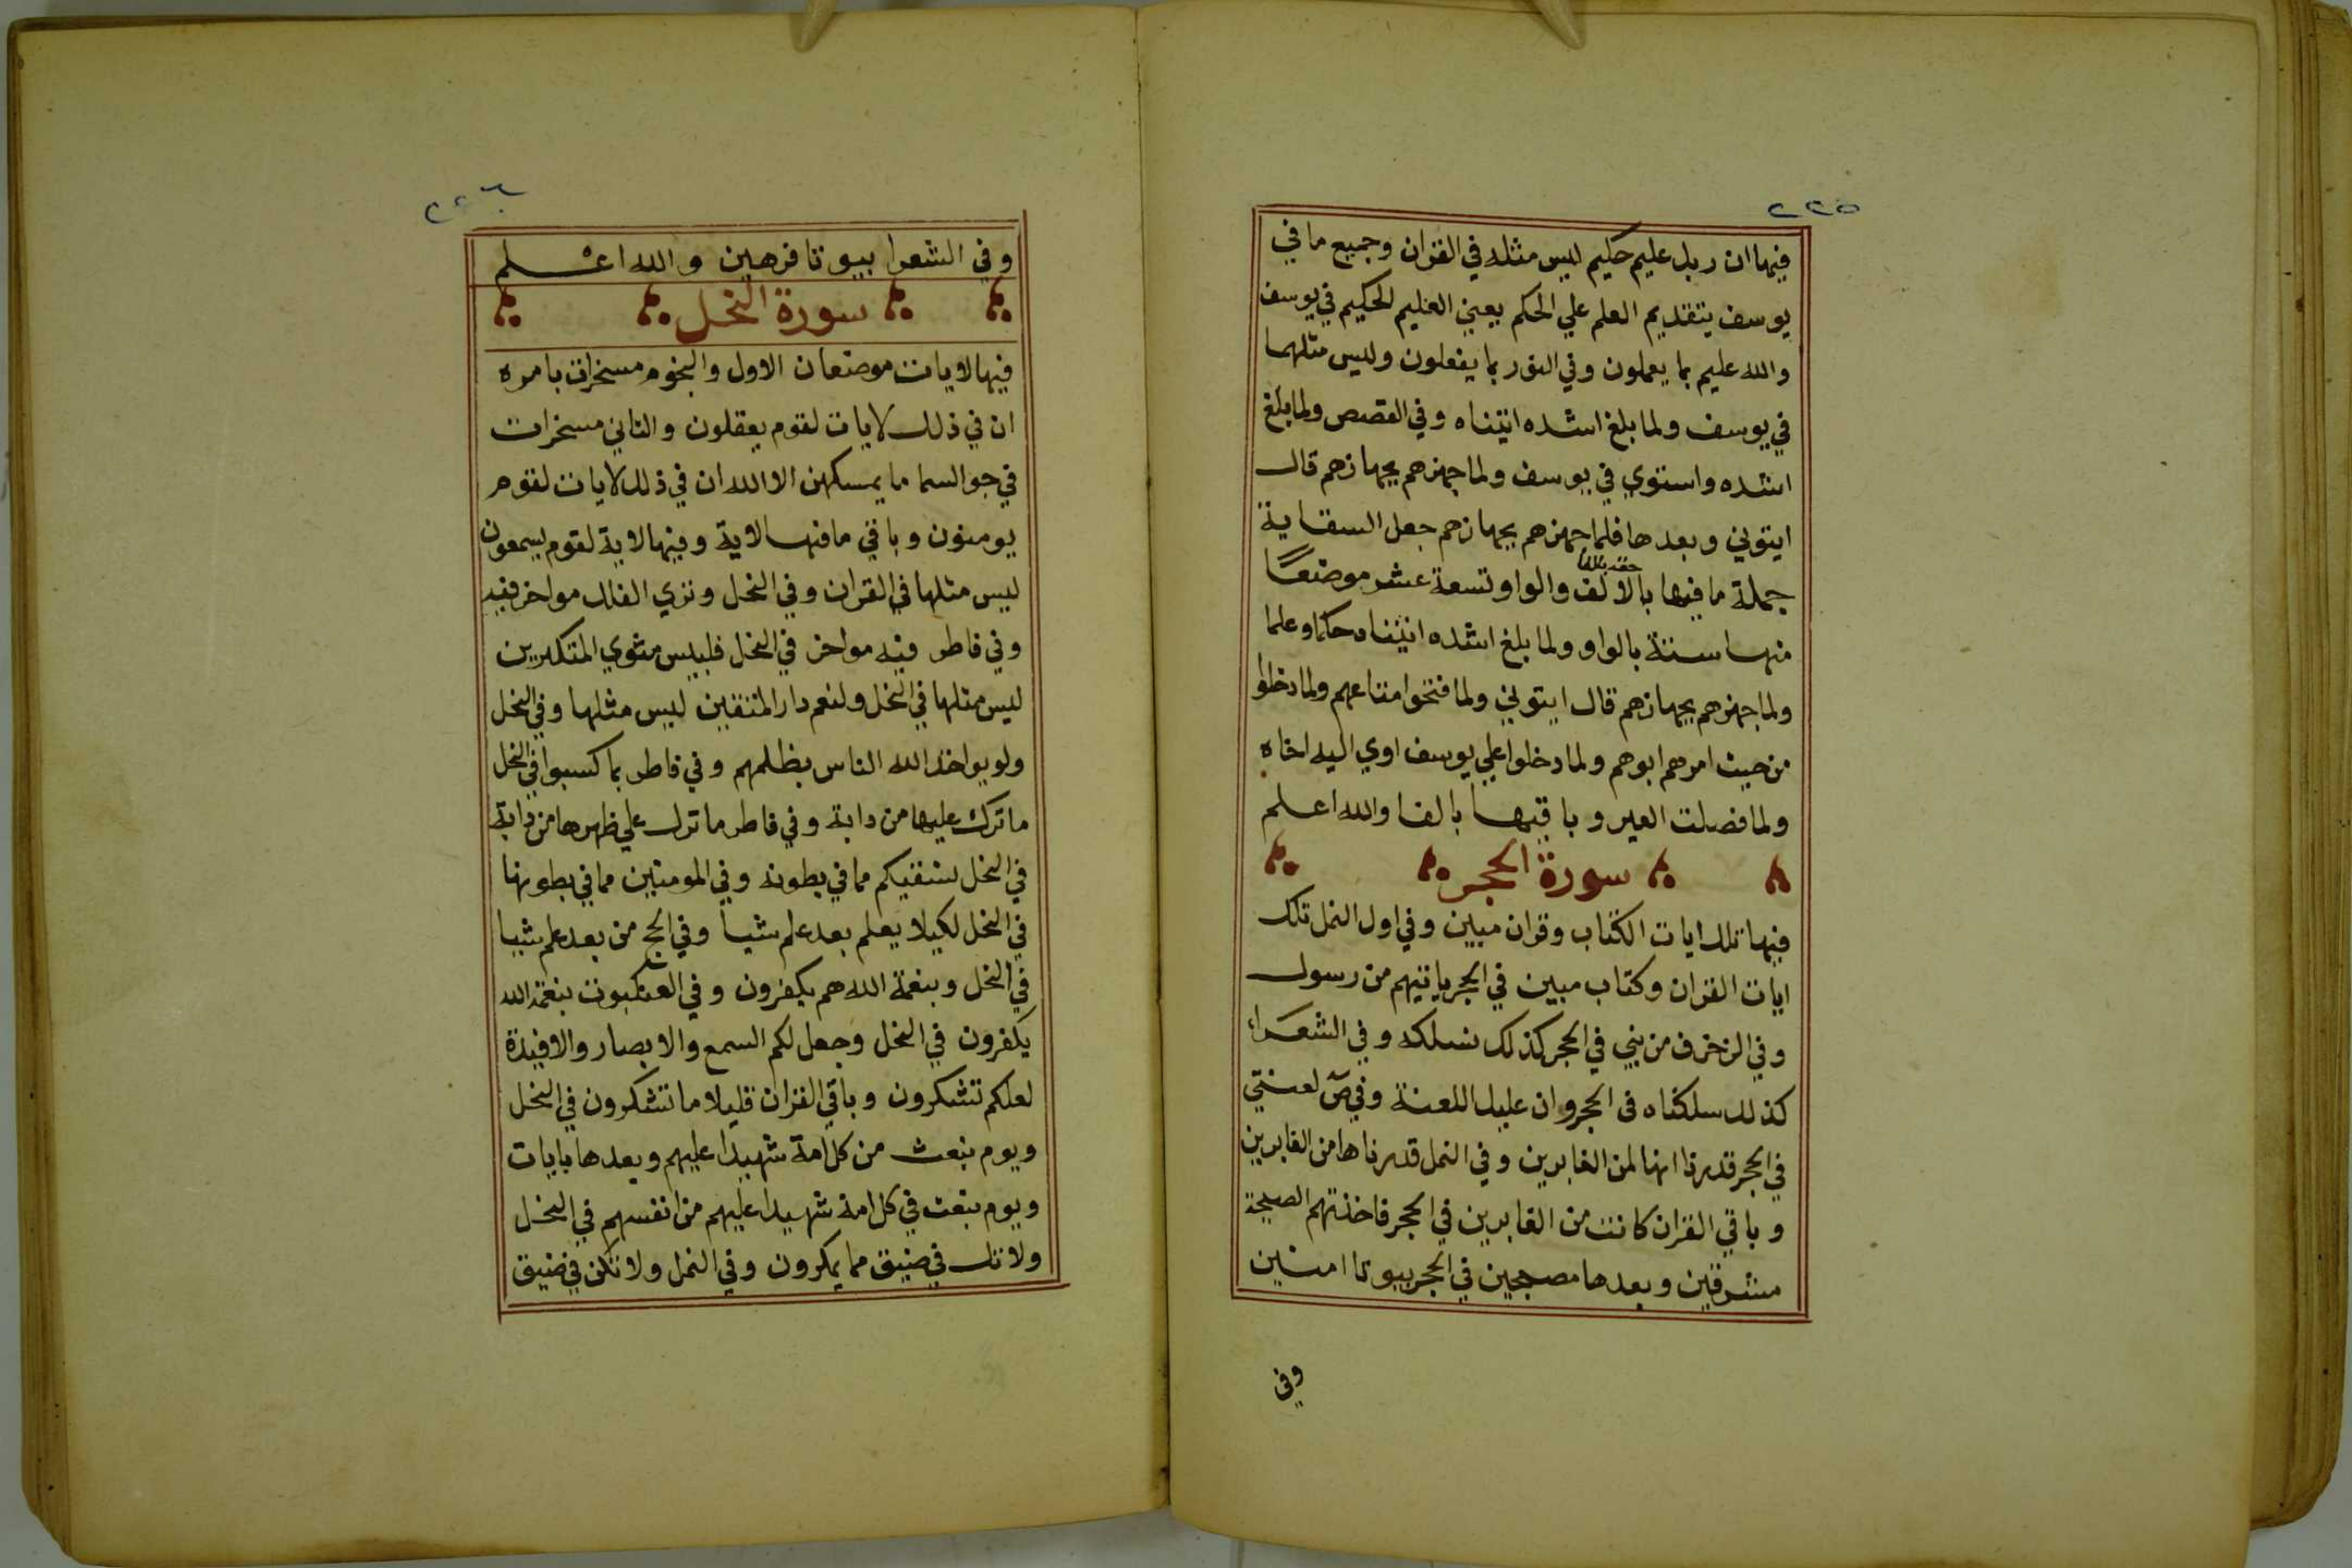 ٢٢٥
فيها ان ربك عليم حكيم ليس مثله في القران وجميع ما في
يوسف يتقديم العلم علي الحكم يعني العليم الحكيم في يوسف
والله عليم بما يعملون وفي النور بما يفعلون وليس مثلهما
في يوسف ولما بلغ اشده اتيناه وفي القصص ولما بلغ
اشده واستوي في يوسف ولما جهزهم بجهازهم قال
ايتوني وبعدها فلما جهزهم بجهازهم جعل السقاية
جملة ما فيها بالالف والواو تسعة عشر موضعًا
منها ستة بالواو ولما بلغ اشده اتيناه حكما وعلما
ولما جهزهم بجهازهم قال ايتوني ولما فتحوا متاعهم ولما دخلوا
من حيث امرهم ابوهم ولما دخلوا علي يوسف اوي اليه اخاه
ولما فصلت العير وباقيها بالفا والله اعلم
سورة الحجر
فيها تلك ايات الكتاب وقران مبين وفي اول النمل تلك
ايات القران وكتاب مبين في الحجر ياتيهم من رسول
وفي الزخرف من نبي في الحجر كذلك نسلكه وفي الشعراء
كذلك سلكناه في الحجر وان عليك اللعنة وفي صٓ لعنتي
في الحجر قدرنا انها لمن الغابرين وفي النمل قدرناها من الغابرين
وباقي القران كانت من الغابرين في الحجر فاخذتهم الصيحة
مشرقين وبعدها مصبحين في الحجر بيوتا امنين
وفي
٢٢٦
وفي الشعرا بيوتا فرهين والله اعلم
سورة النحل
فيها لايات موضعان الاول والنجوم مسخرات بامره
ان في ذلك لايات لقوم يعقلون والثاني مسخرات
في جو السما ما يمسكهن الا الله ان في ذلك لايات لقوم
يومنون وباقي ما فيها لاية وفيها لاية لقوم يسمعون
ليس مثلها في القران وفي النحل وتري الفلك مواخر فيه
وفي فاطر فيه مواخر في النحل فلبيس مثوي المتكبرين
ليس مثلها في النحل ولنعم دار المتقين ليس مثلها وفي النحل
ولو يواخذ الله الناس بظلمهم وفي فاطر بما كسبوا في النحل
ما ترك عليها من دابة وفي فاطر ما ترك علي ظهرها من دابة
في النحل نسقيكم مما في بطونه وفي المومنين مما في بطونها
في النحل لكيلا يعلم بعد علم شيا وفي الحج من بعد علم شيا
في النحل وبنعمة الله هم يكفرون وفي العنكبوت بنعمة الله
يكفرون في النحل وجعل لكم السمع والابصار والافيدة
لعلكم تشكرون وباقي القران قليلا ما تشكرون في النحل
ويوم نبعث من كل امة شهيدا عليهم وبعدها بايات
ويوم نبعث في كل امة شهيدا عليهم من انفسهم في النحل
ولا تك في ضيق مما يمكرون وفي النمل ولا تكن في ضيق